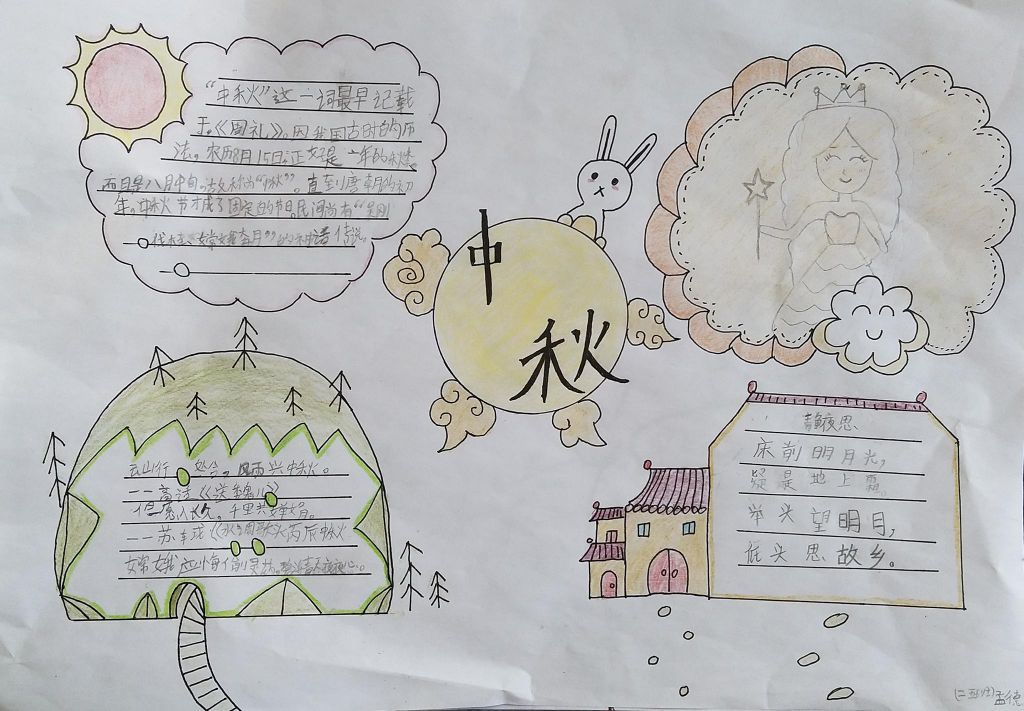 “中秋”这一词最早记载
于《周礼》。因我国古时的历
法，农历8月15日，正好是一年的秋季，
而且是八月中旬，故称为“中秋”。直至到唐朝的初
年，中秋节才成了固定的节日。民间尚有“吴刚
伐桂”“嫦娥奔月”的神话传说。
中
秋
云山行处合，风雨兴中秋。
——高适《送魏八》
但愿人长久，千里共婵娟。
——苏轼《水调歌头丙辰中秋
嫦娥应悔偷灵药，
静夜思
床前明月光，
疑是地上霜。
举头望明月，
低头思故乡。
孟德